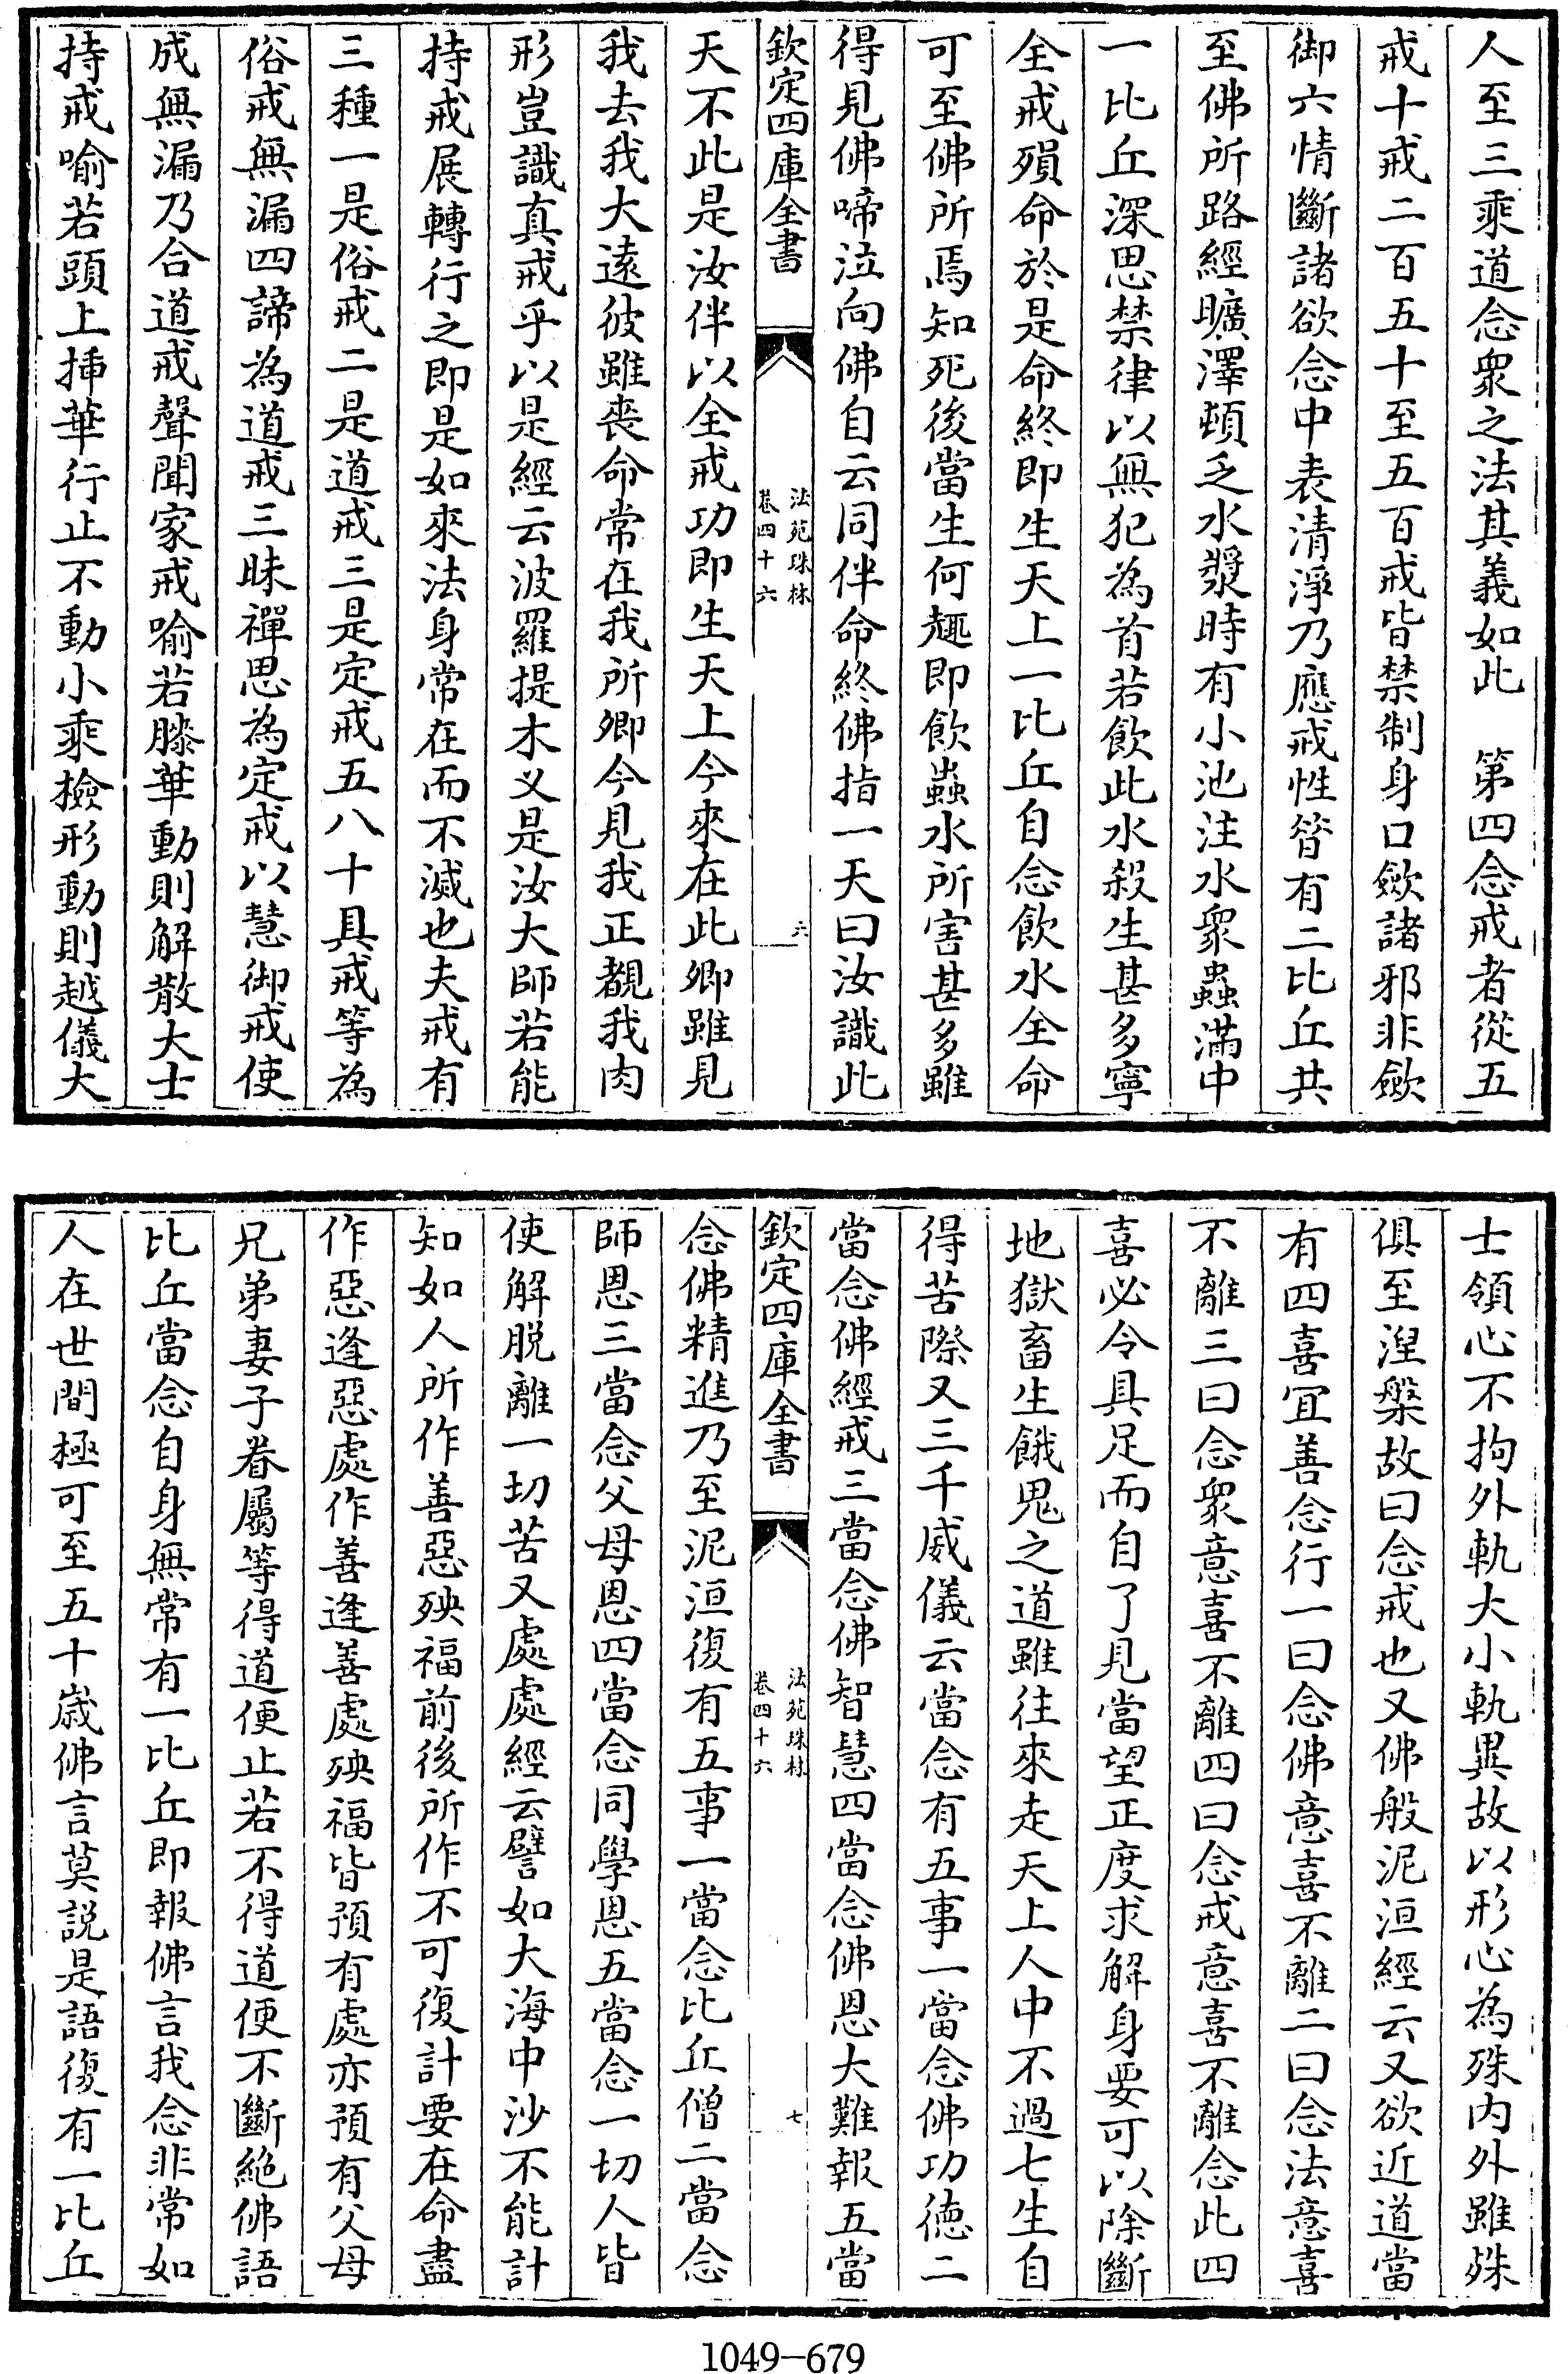 人至三乘道念衆之法其義如此　第四念戒者從五
戒十戒二百五十至五百戒皆禁制身口斂諸邪非斂
御六情斷諸欲念中表清淨乃應戒性昔有二比丘共
至佛所路經曠澤頓乏水漿時有小池注水衆蟲滿中
一比丘深思禁律以無犯為首若飲此水殺生甚多寧
全戒殞命於是命終即生天上一比丘自念飲水全命
可至佛所焉知死後當生何趣即飲蟲水所害甚多雖
得見佛啼泣向佛自云同伴命終佛指一天曰汝識此
欽定四庫全書
法苑珠林
卷四十六
六
天不此是汝伴以全戒功即生天上今來在此卿雖見
我去我大遠彼雖喪命常在我所卿今見我正覩我肉
形豈識真戒乎以是經云波羅提木义是汝大師若能
持戒展轉行之即是如來法身常在而不滅也夫戒有
三種一是俗戒二是道戒三是定戒五八十具戒等為
俗戒無漏四諦為道戒三昧禪思為定戒以慧御戒使
成無漏乃合道戒聲聞家戒喻若膝華動則解散大士
持戒喻若頭上揷華行止不動小乘檢形動則越儀大
士領心不拘外軌大小軌異故以形心為殊内外雖殊
俱至湼槃故曰念戒也又佛般泥洹經云又欲近道當
有四喜宜善念行一曰念佛意喜不離二曰念法意喜
不離三曰念衆意喜不離四曰念戒意喜不離念此四
喜必令具足而自了見當望正度求解身要可以除斷
地獄畜生餓鬼之道雖往來走天上人中不過七生自
得苦際又三千威儀云當念有五事一當念佛功徳二
當念佛經戒三當念佛智慧四當念佛恩大難報五當
欽定四庫全書
法苑珠林
卷四十六
七
念佛精進乃至泥洹復有五事一當念比丘僧二當念
師恩三當念父母恩四當念同學恩五當念一切人皆
使解脱離一切苦又處處經云譬如大海中沙不能計
知如人所作善惡殃福前後所作不可復計要在命盡
作惡逢惡處作善逢善處殃福皆預有處亦預有父母
兄弟妻子眷屬等得道便止若不得道便不斷絶佛語
比丘當念自身無常有一比丘即報佛言我念非常如
人在世間極可至五十嵗佛言莫説是語復有一比丘
1049-679